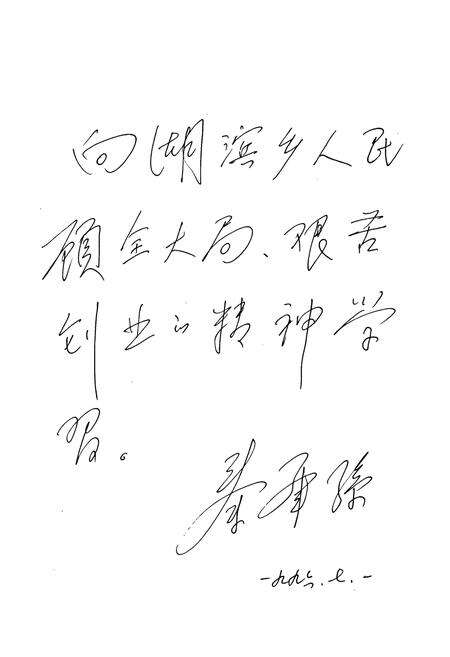 向湖滨乡人民
顾全大局、艰苦
创业的精神学
习。
秦華孫
一九九六.七.一